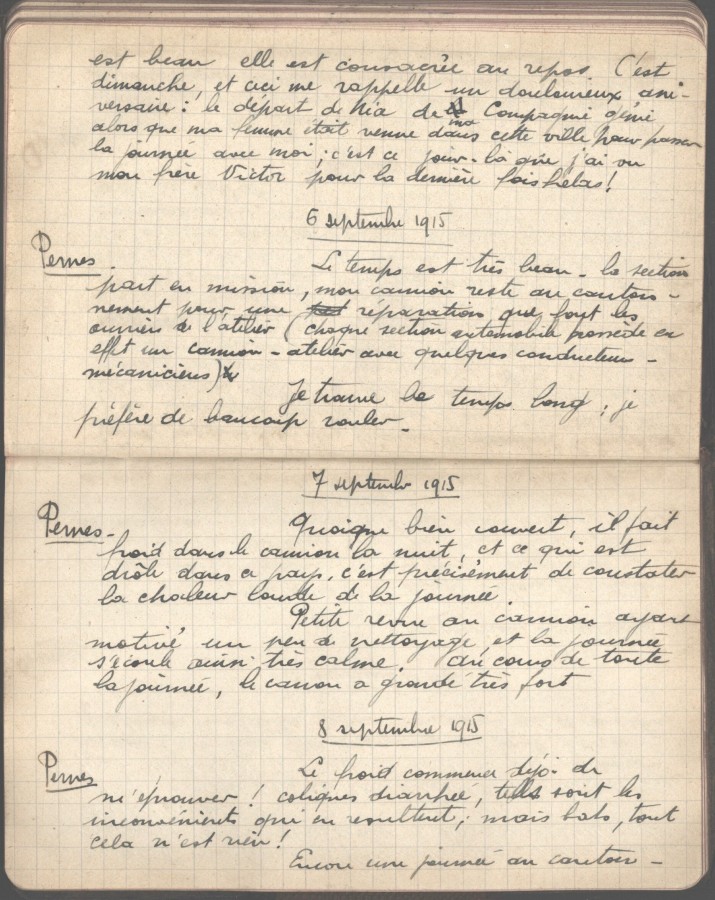 est beau elle est consacrée au repos C'est
dimanche, et ceci me rappelle un douloureux ani-
versaire : le départ de de ma Compagnie génie
alors que ma femme était venue dans cette ville pour passer
la journée avec moi ; c'est ce jour-là que j'ai vu
mon frère Victor pour la dernière fois hélas !
6 septembre 1915
Pernes
Le temps est très beau - la section
part en mission, mon camion reste au canton-
nement pour une réparation que font les
ouvriers de l'atelier (chaque section automobile possède en
effet un camion-atelier avec quelques conducteurs -
mécaniciens)
Je trouve le temps long ; je
préfère de beaucoup rouler -
7 septembre 1915
Pernes -
Quoique bien couvert, il fait
froid dans le camion la nuit, et ce qui est
drôle dans ce pays, c'est précisément de constater
la chaleur lourde de la journée
Petite revue au camion ayant
motivé un peu de nettoyage et la journée
s'écoule ainsi très calme. Au cours de toute
la journée, le canon a grondé très fort
8 septembre 1915
Pernes
Le froid commence déjà de
m'éprouver ! coliques diarrhée, tels sont les
inconvénients qui en resultent ; mais bah, tout
cela n'est rien !
Encore une journée au canton -